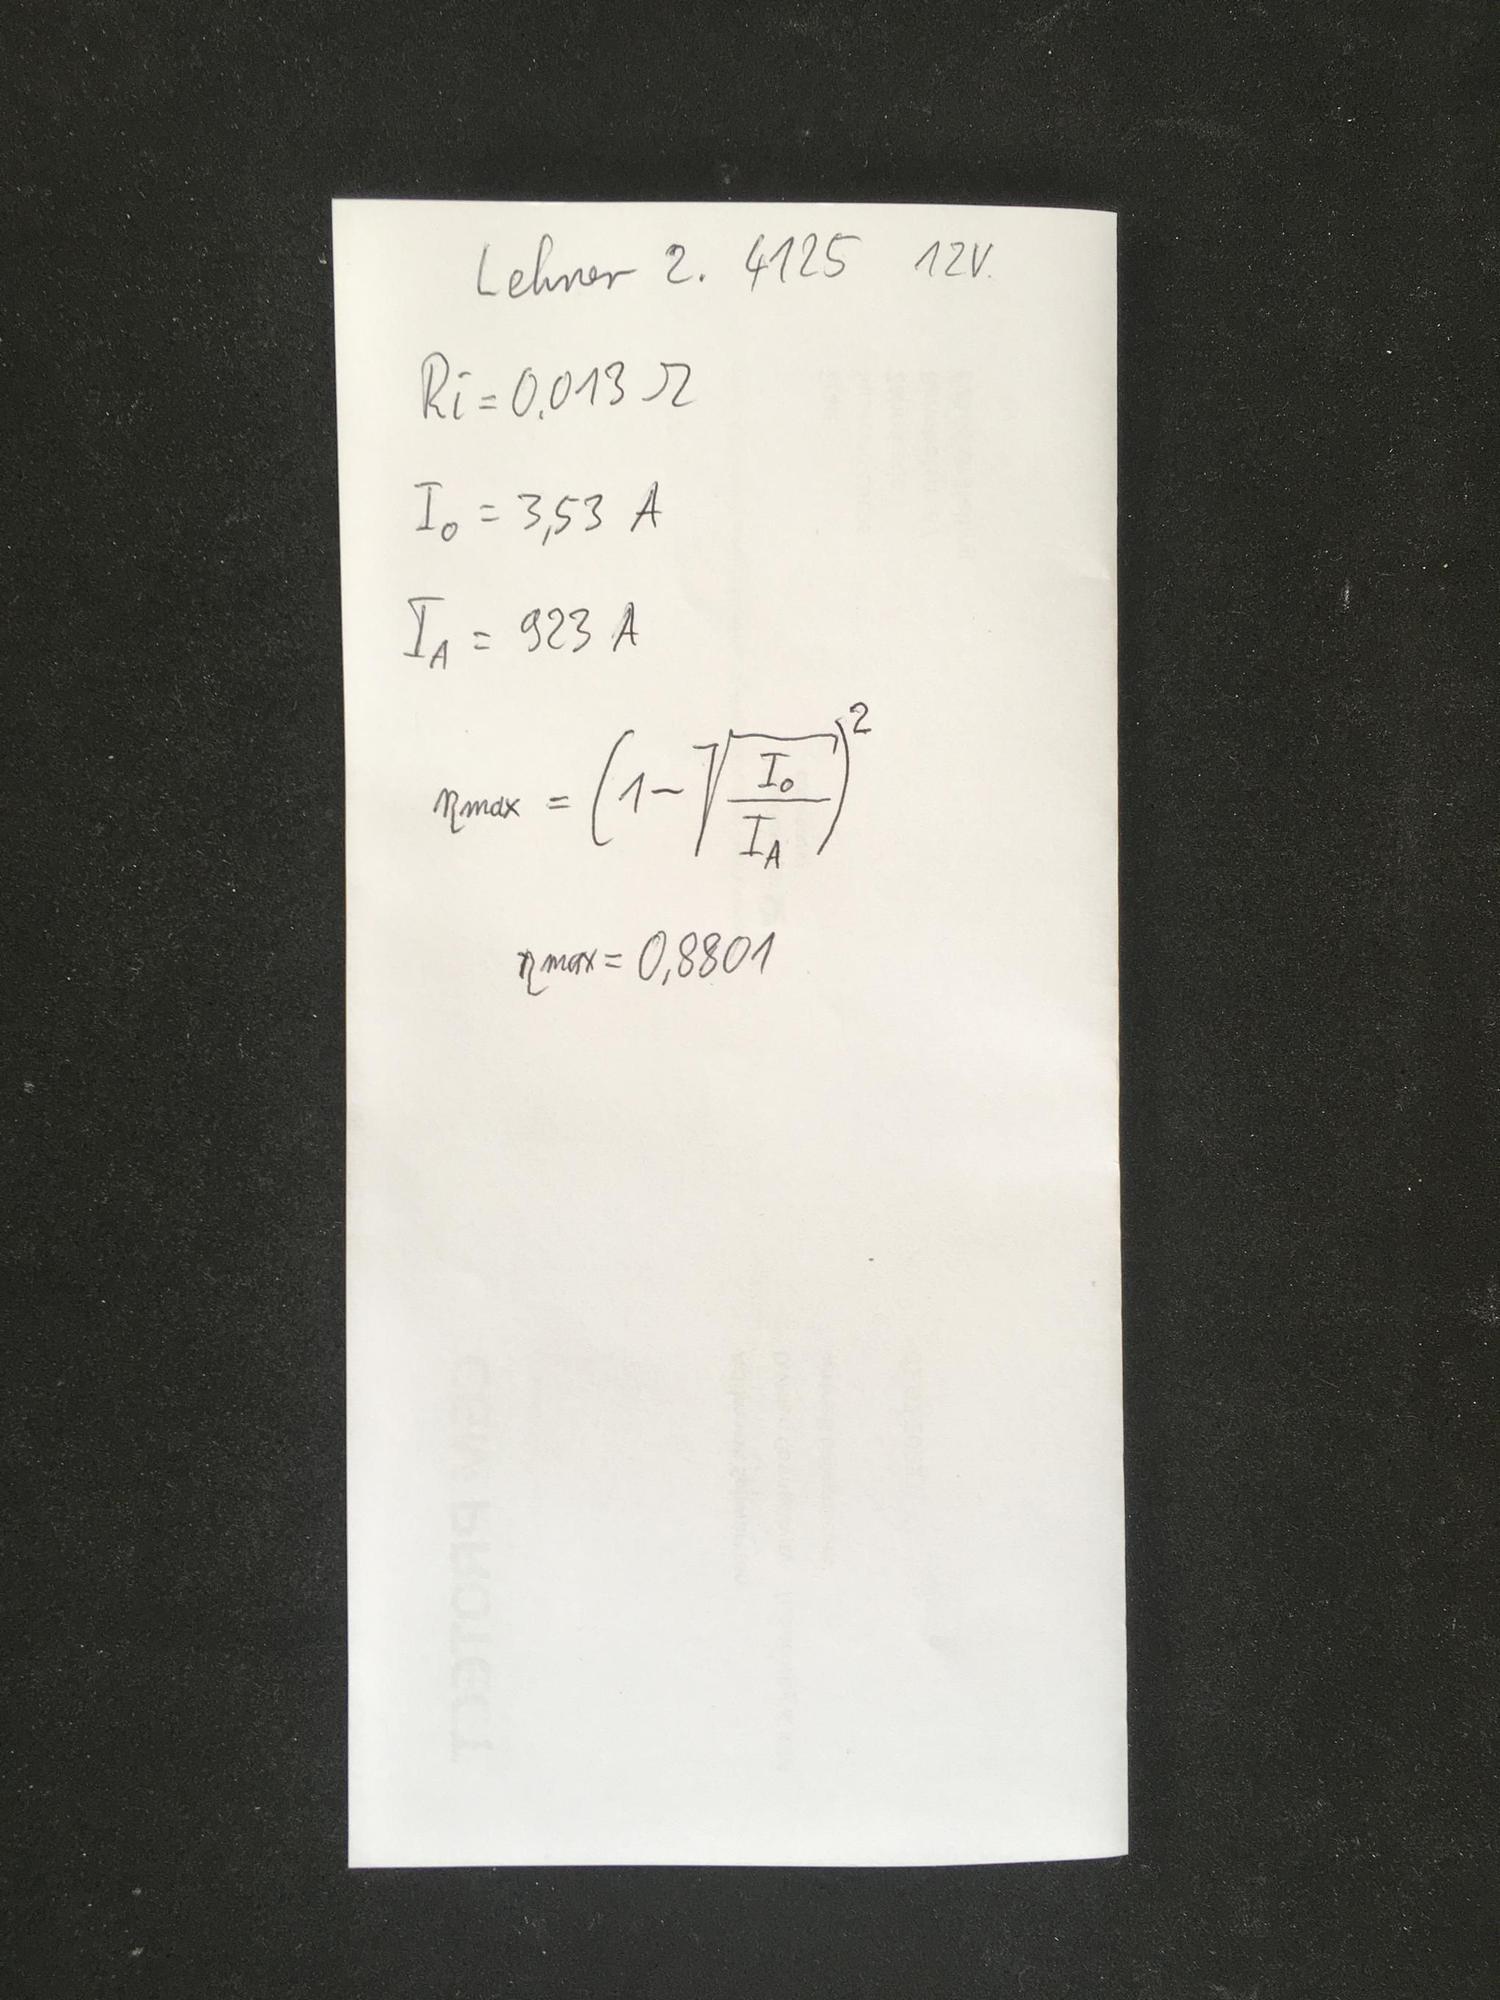 Lehner 2. 4125 12V.
Ri = 0.013 Ω
I₀ = 3,53 A
I_A = 923 A
ηmax = (1 - √(I₀ / I_A))²
ηmax = 0,8801